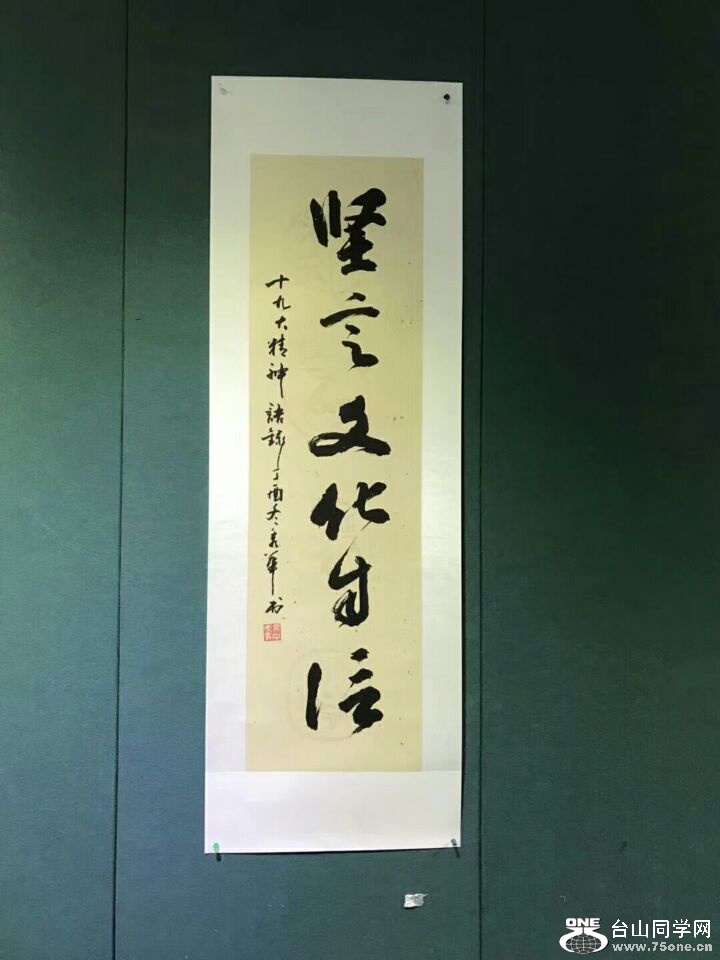 坚定文化自信
十九大精神语录丁酉冬
ONE
台山同学网
www.75one.cn